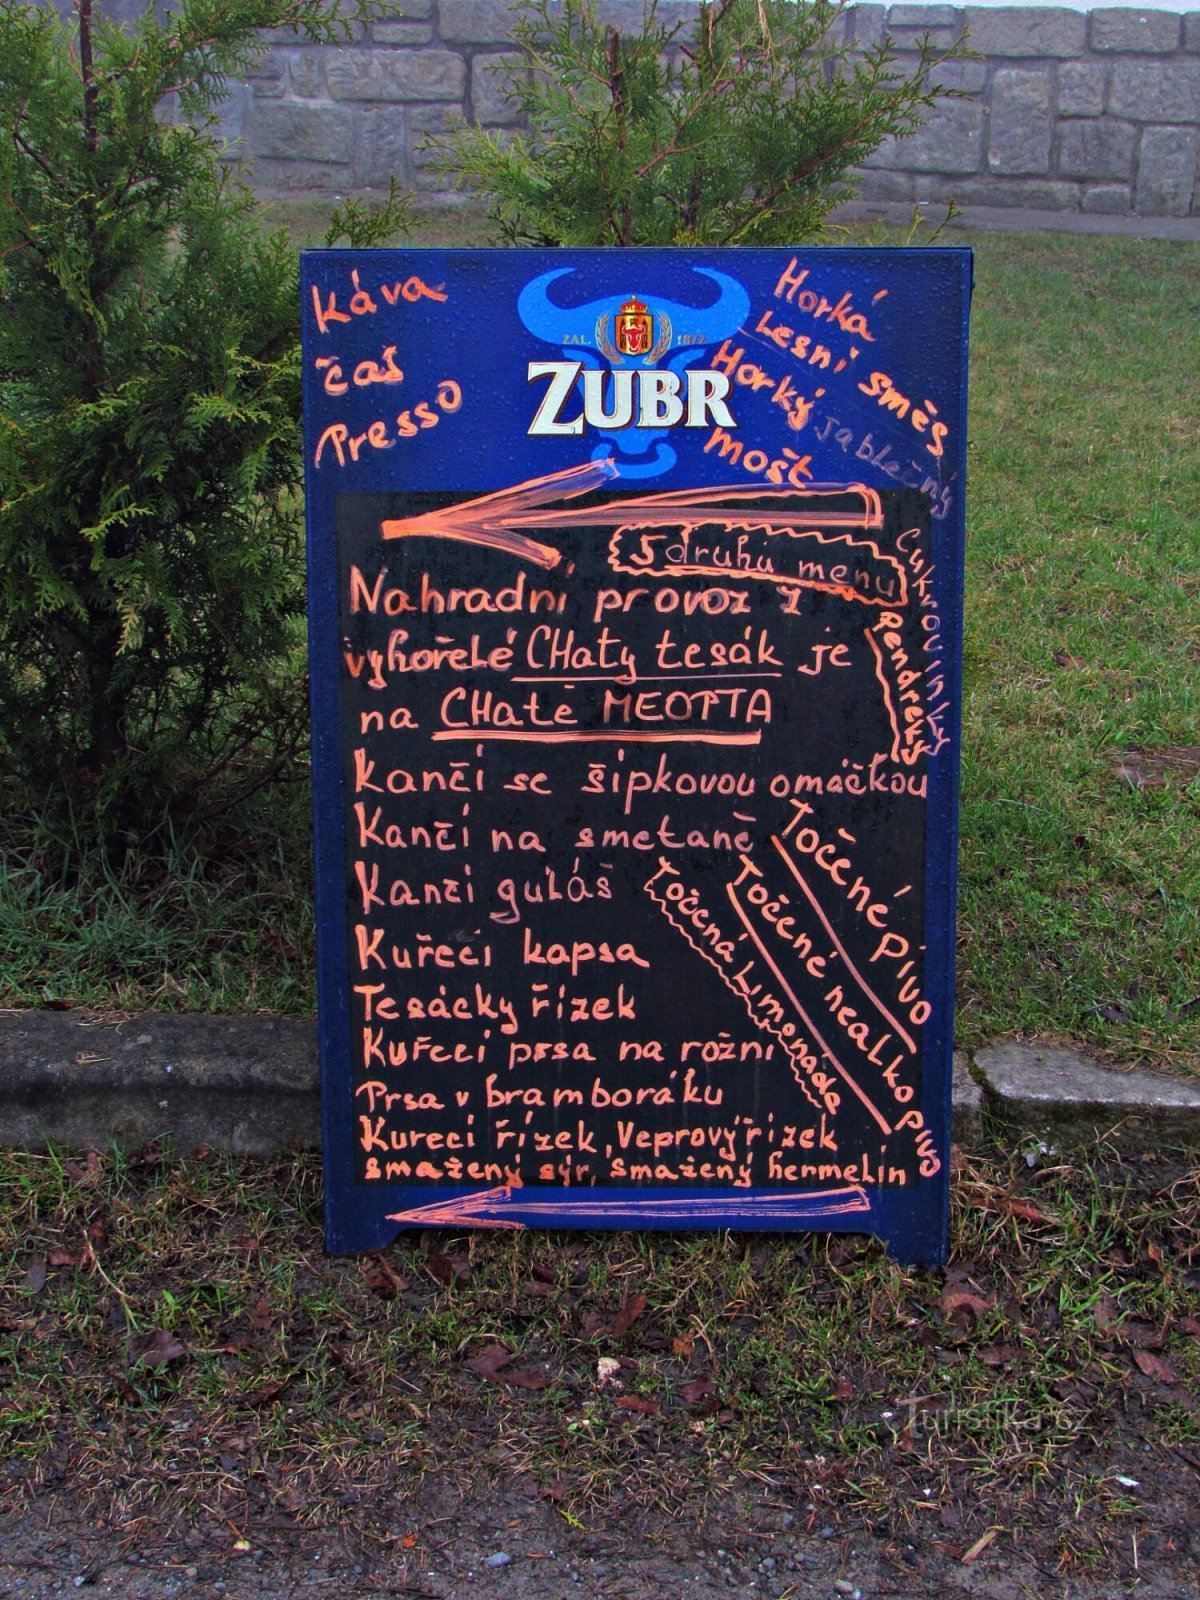 Káva
čaš
Presso
ZAL. 1872
ZUBR
Horká
Lesní směs
Horký jablečný
mošt
5 druhů menu
Cukrovinky
Pendreky
Nahradní provoz z
vyhořelé CHaty tesák je
na CHatě MEOPTA
Kančí se šípkovou omáčkou
Kančí na smetaně
Kanči guláš
Kuřecí kapsa
Tesácky řízek
Kuřecí prsa na rožni
Prsa v bramboráku
Kureci řízek, Veprový řizek
smažený sýr, smažený hermelín
Točené Pivo
Točené nealko pivo
Točená Limonáda
Turistika.cz